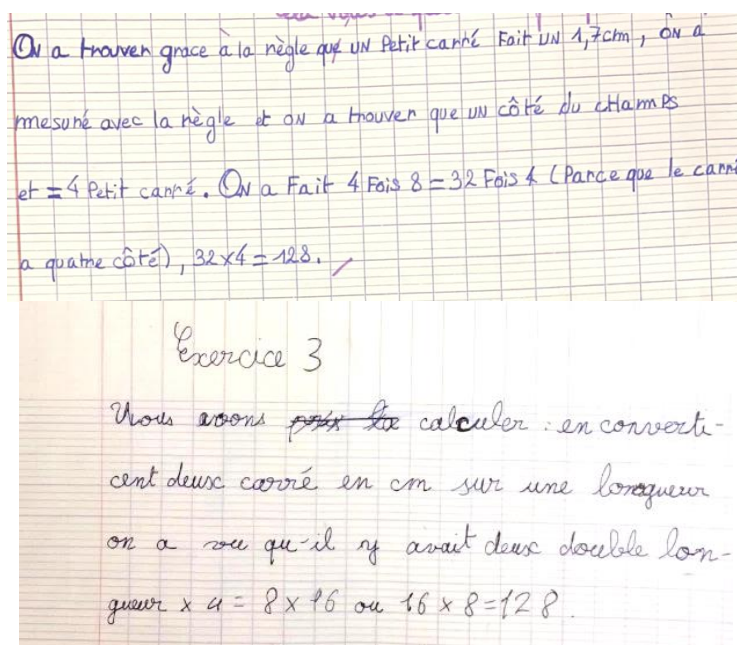 On a trouver grace à la règle que un Petit carré Fait UN 1,7cm, ON a
mesuré avec la règle et ON a trouver que UN côté du champs
et = 4 Petit carré. ON a Fait 4 Fois 8 = 32 Fois 4 (Parce que le carré
a quatre côté), 32x4 = 128.
Exercice 3
Nous avons calculer : en converti-
cent deux carré en cm sur une longueur
on a vu qu-il y avait deux double lon-
gueur x 4 = 8 x 16 ou 16 x 8 = 128.